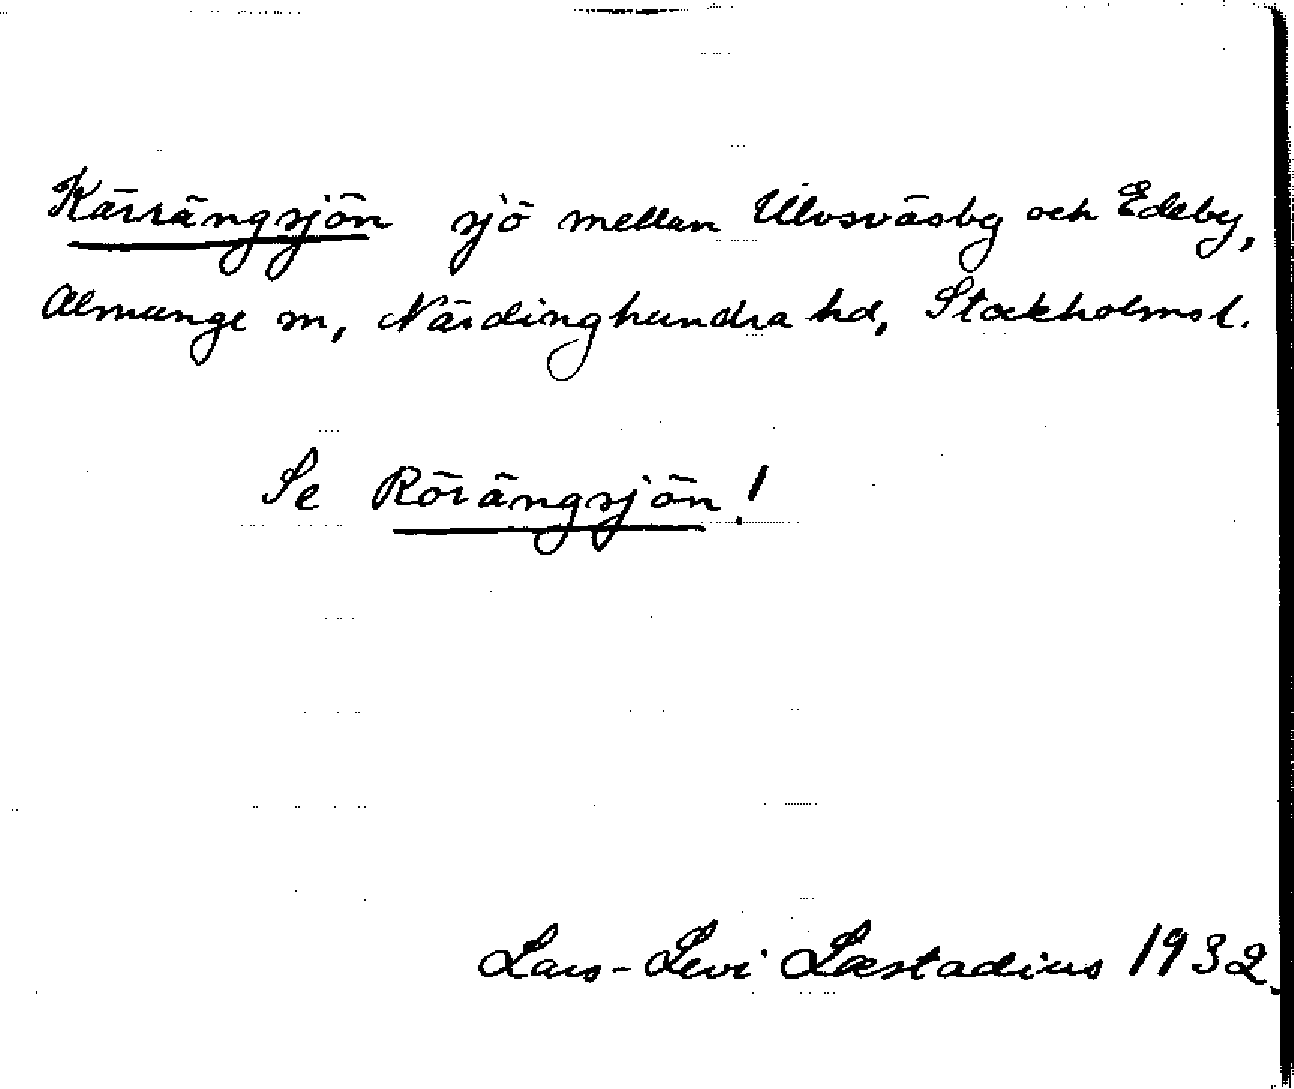 Kärrängsjön sjö mellan Ulvsväsby och Edeby,
Almunge sn, Närdinghundra hd, Stockholms l.
Se Rörängsjön!
Lars-Levi Læstadius 1932.